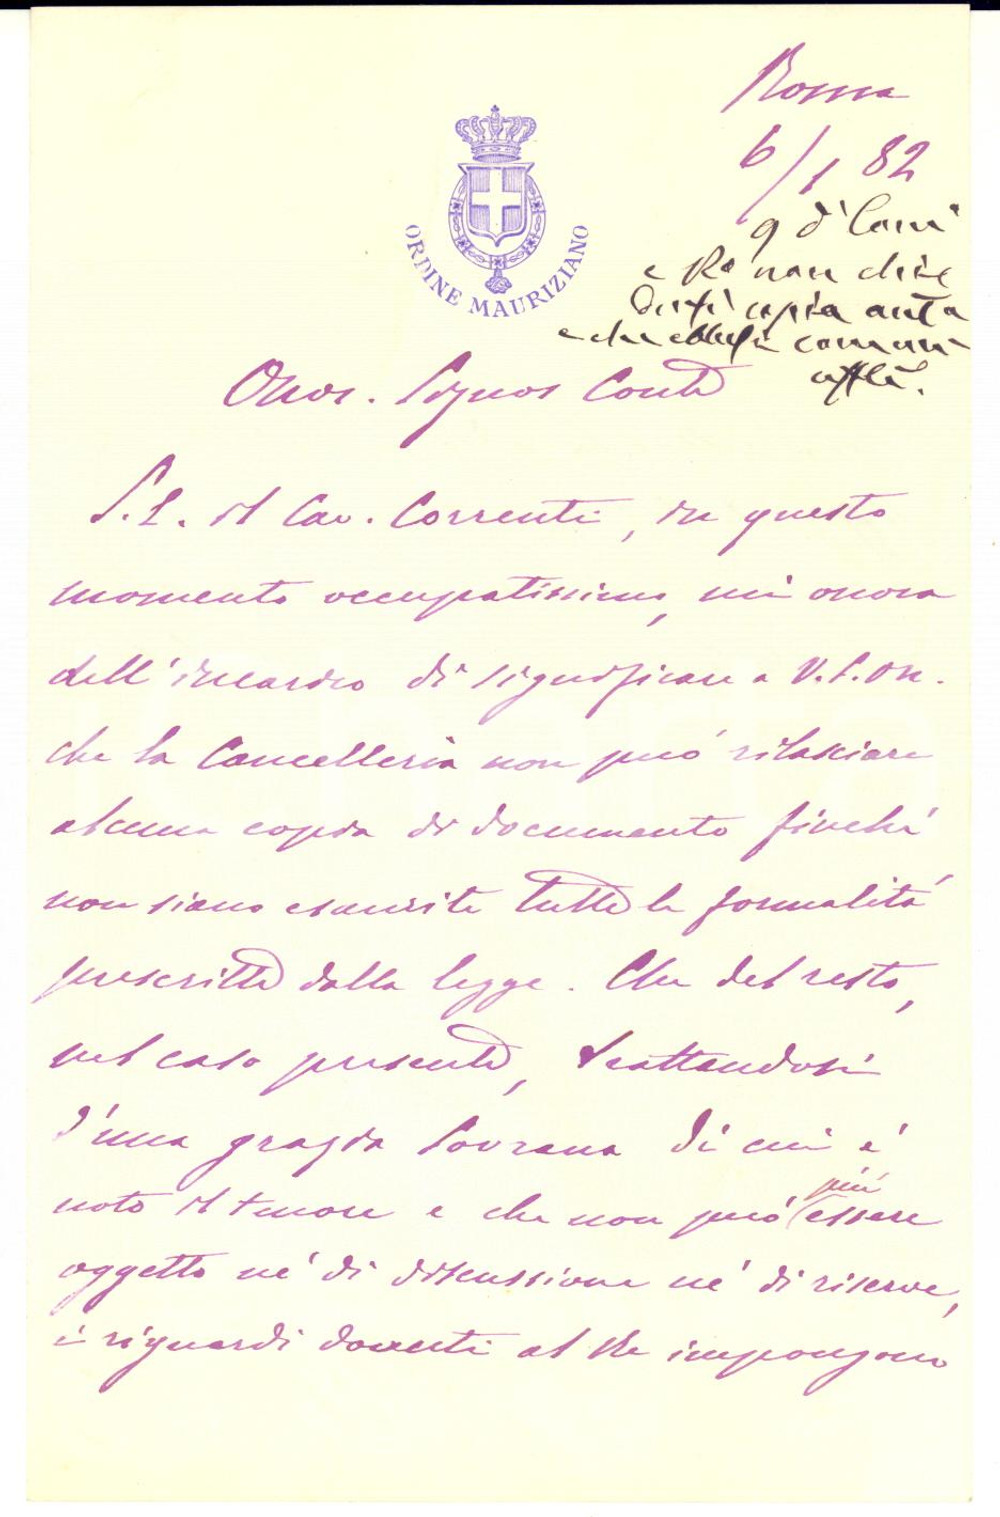 Roma
6/1 82
ORDINE MAURIZIANO
e Re non
copia
e che
Onor. Signor Conte
S. E. il Cav. Correnti, in questo
momento occupatissimo, mi onora
dell'incarico di significare a V. S. On.
che la Cancelleria non può rilasciare
alcuna copia di documento finché
non siano esaurite tutte le formalità
prescritte dalla legge. Che del resto,
nel caso presente, trattandosi
d'una grazia Sovrana di cui è
noto il tenore e che non può (più) essere
oggetto né di discussione né di riserve,
i riguardi dovuti al Re impongono